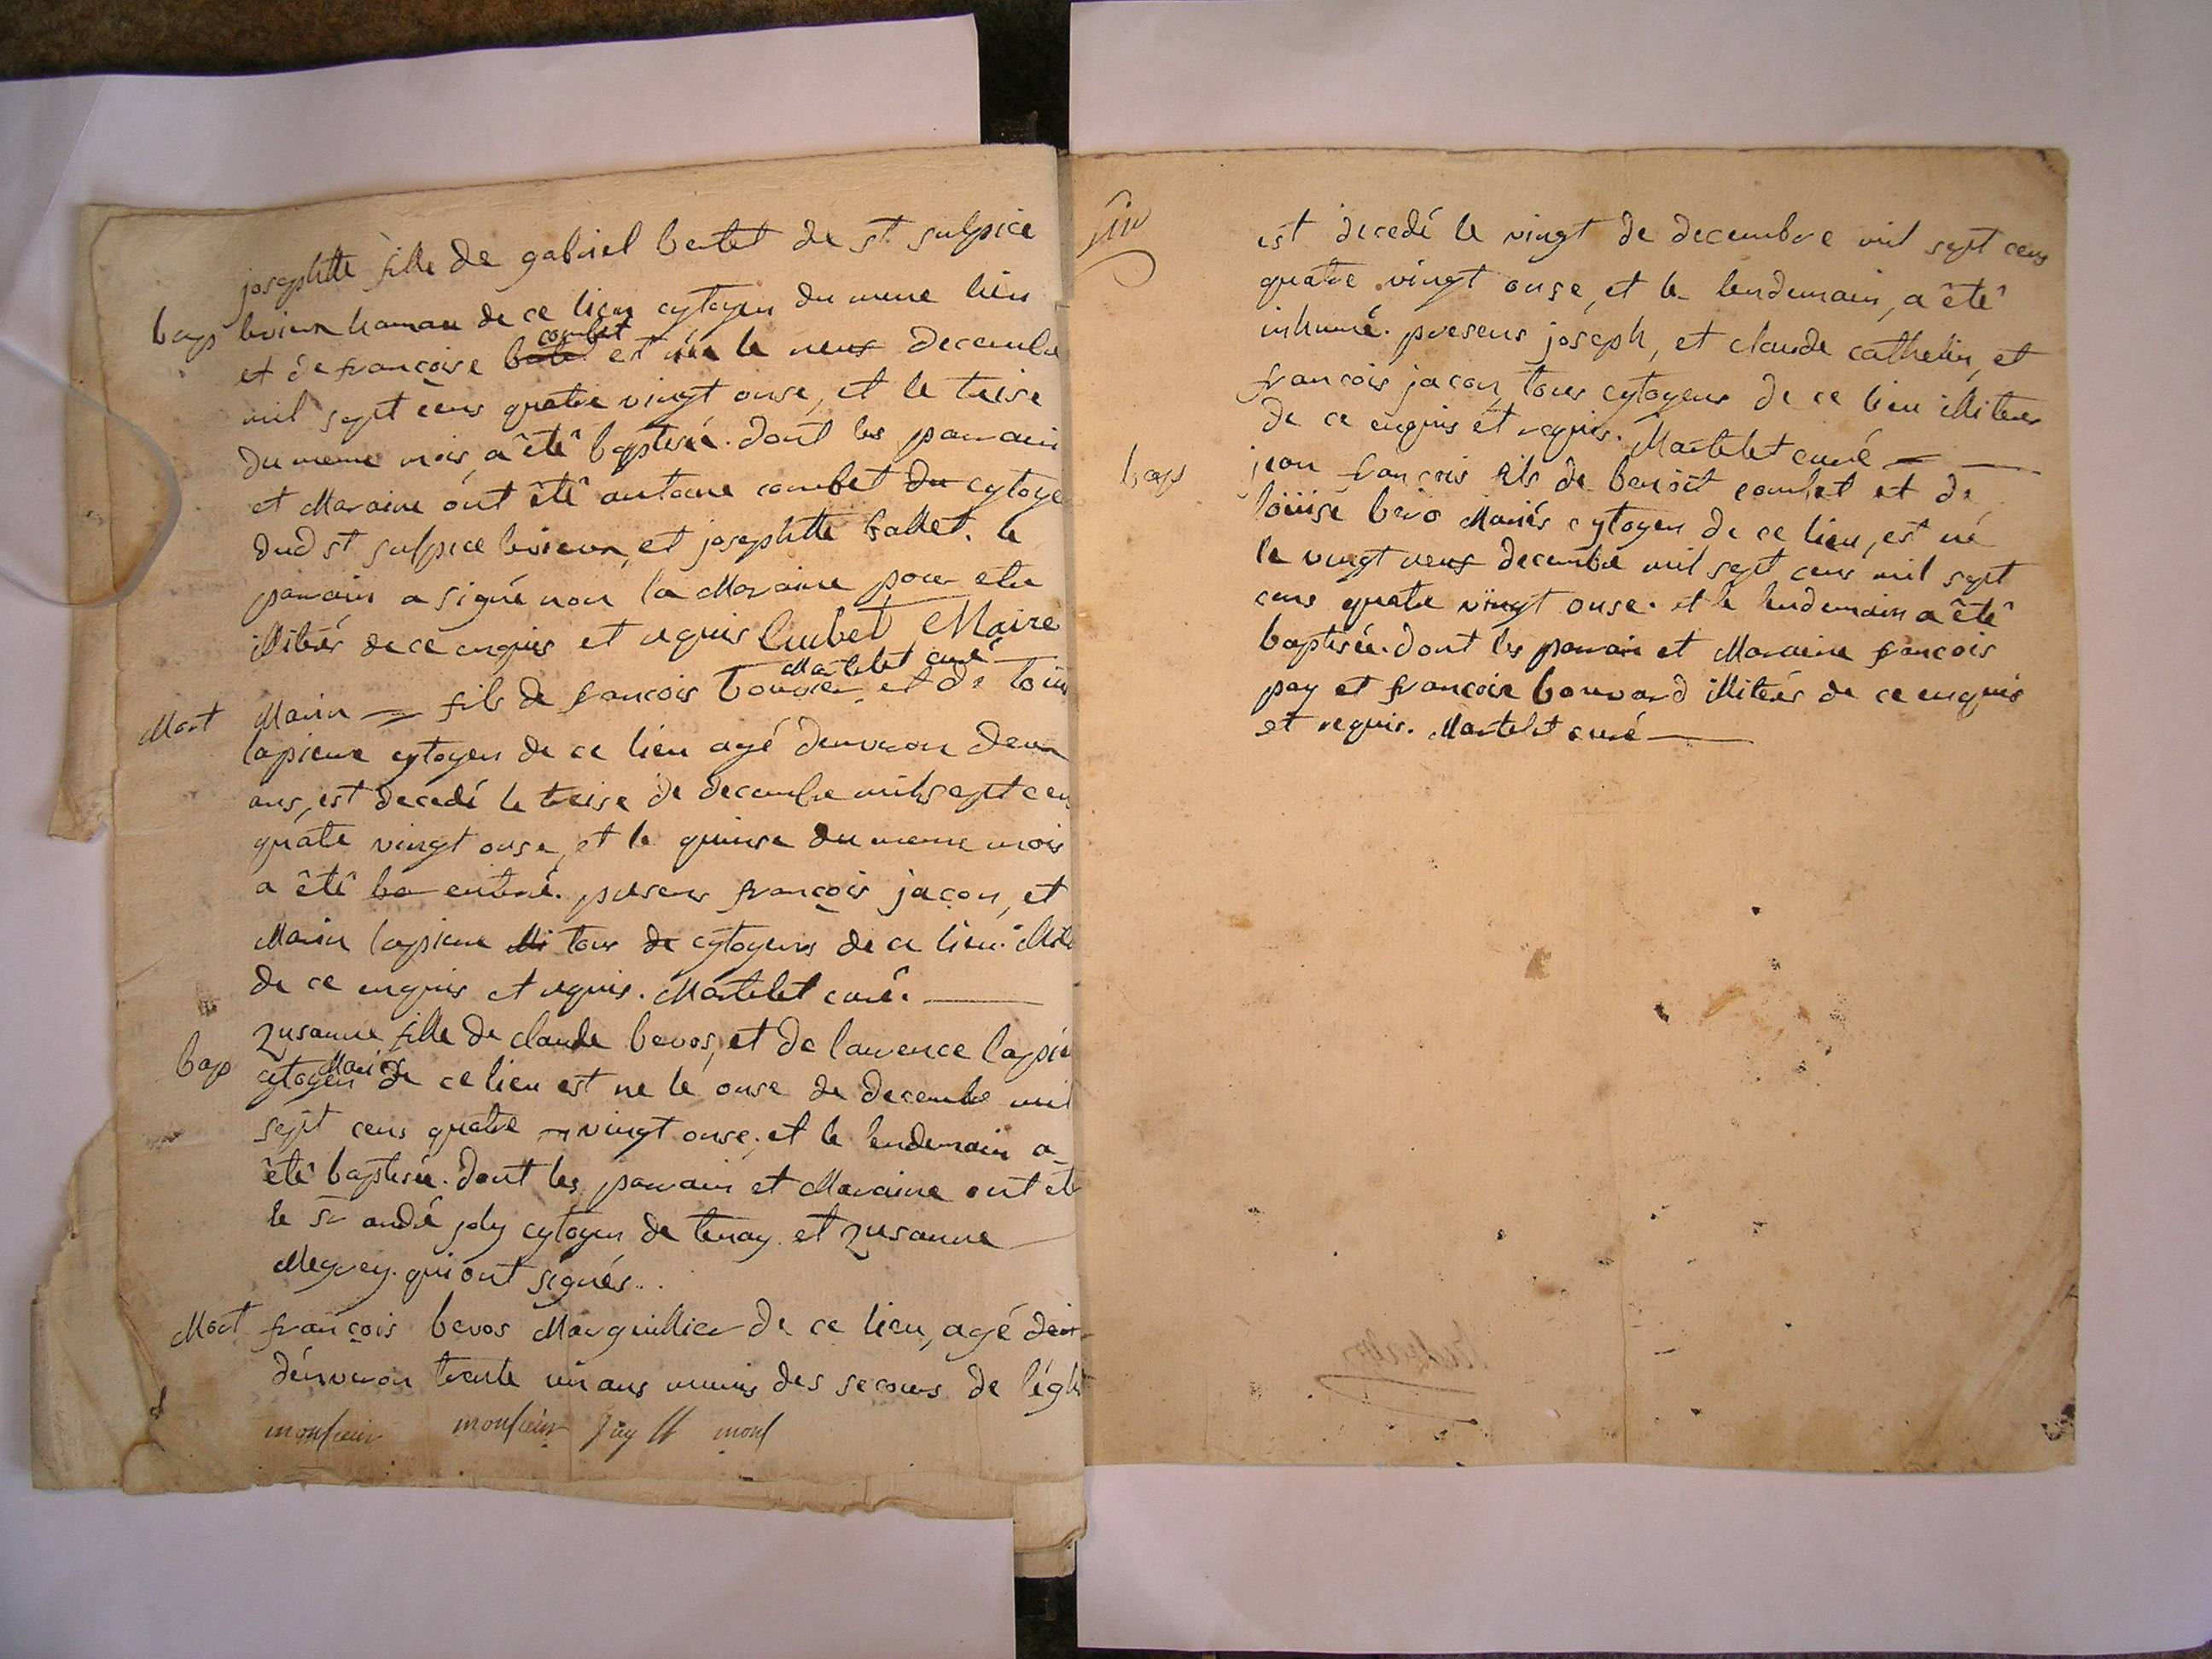 josephtte fille de gabriel bertet de st sulpice
bap levieux hamau de ce lieu cytoyen du meme lieu
combet
et de françoise est née le neuf decembre
mil sept cens quatre vingt onse, et le treise
du meme mois, a êtê baptisée. dont les parrain
et Maraine ont êtê antoine combet du cytoye
dud st sulpice levieux, et josephtte ballet. le
parrain a signé non la Maraine pour etre
illiterés de ce enquis et requis Cumbet Maire
Martelet curé
Mort Marin fils de francois bouvier et de loüis
lapierre cytoyen de ce lieu agé denviron deux
ans, est decedé le treise de decembre mil sept cen
quatre vingt onse, et le quinse du meme mois
a êtê ba enterré. presens françois jaçon, et
Marin lapierre illi tous de cytoyens de ce lieu illite
de ce enquis et requis. Martelet curé.
bap Zusanne fille de claude bevos, et de laurence lapie
Mariés
cytoyen de ce lieu est ne le onse de decembre mil
sept cens quatre vingt onse. et le lendemain a
êtê baptisée. dont les parrain et Maraine ont ete
le sr andré joly cytoyen de tenay et Zusanne
Megrey. qui ont signés..
Mort françois bevos Marguillier de ce lieu, agé den
dénviron trente un ans munis des secours de légli
monsieur monsieur Juy ll mons
fin
est decedé le vingt de decembre mil sept cens
quatre vingt onse, et le lendemain, a êtê
inhumé. presens joseph, et claude cathelin, et
francois jacon, tous cytoyens de ce lieu illiteres
de ce enquis et requis. Martelet curé
bap jean françois fils de benoit combet et de
loüise bevo Mariés cytoyen de ce lieu, est né
le vingt neuf decembre mil sept cens mil sept
cens quatre vingt onse. et le lendemain a êtê
baptisée. dont les parrain et Maraine francois
pay et francoise bouvard illiterés de ce enquis
et requis. Martelet curé